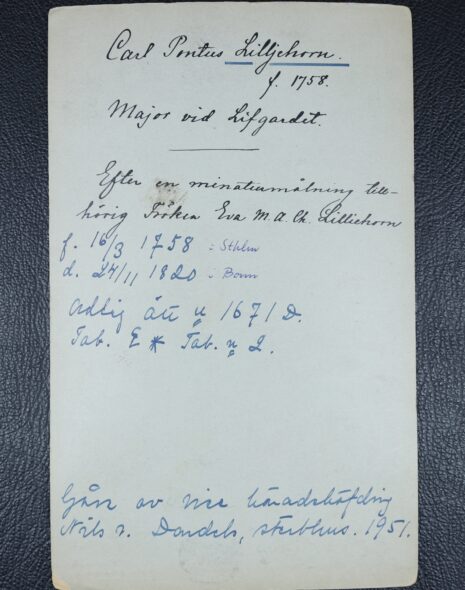 Carl Pontus Lilljehorn.
f. 1758.
Major vid Lifgardet.
Efter en miniaturmålning till-
hörig Fröken Eva M. A. Ch. Lilliehorn
f. 16/3 1758 i Sthlm
d. 24/11 1820 i Bonn
Adlig ätt n 1671 D.
Tab. E * Tab. n 2.
Gåva av vice häradshöfding
Nils v. Dardels, sterbhus. 1951.